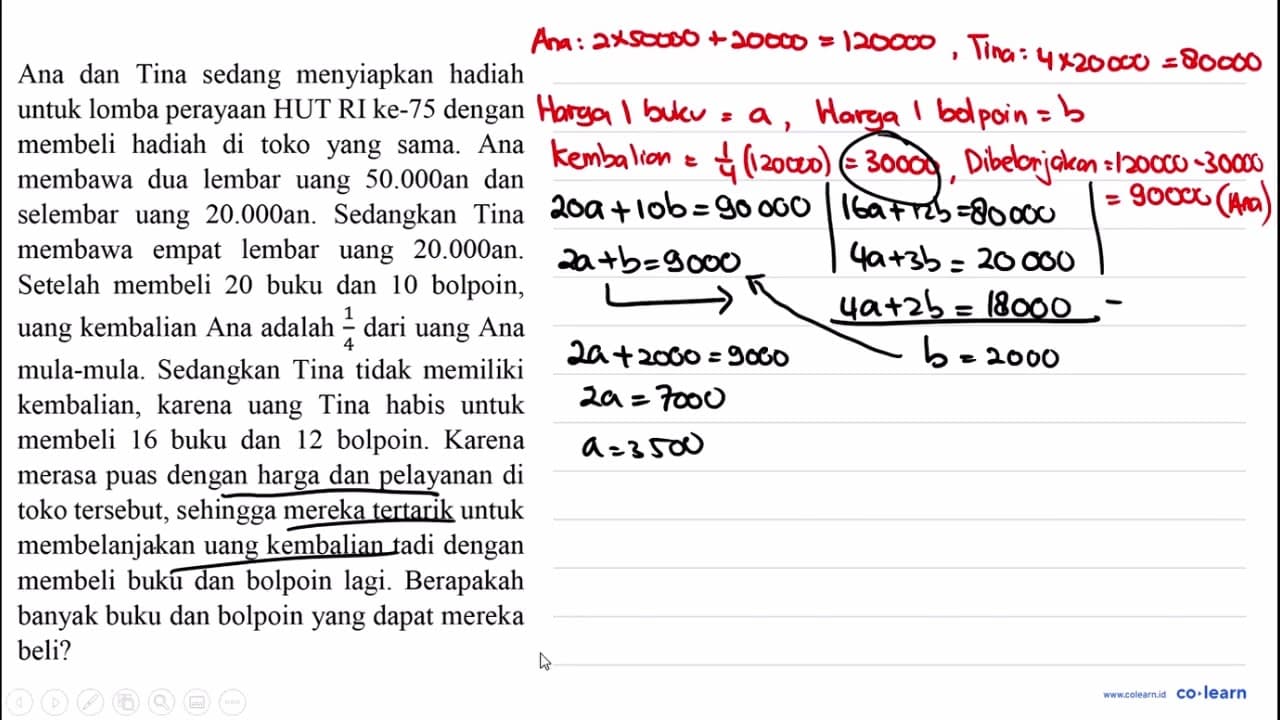 Ana dan Tina sedang menyiapkan hadiah
untuk lomba perayaan HUT RI ke-75 dengan
membeli hadiah di toko yang sama. Ana
membawa dua lembar uang 50.000an dan
selembar uang 20.000an. Sedangkan Tina
membawa empat lembar uang 20.000an.
Setelah membeli 20 buku dan 10 bolpoin,
uang kembalian Ana adalah 1/4 dari uang Ana
mula-mula. Sedangkan Tina tidak memiliki
kembalian, karena uang Tina habis untuk
membeli 16 buku dan 12 bolpoin. Karena
merasa puas dengan harga dan pelayanan di
toko tersebut, sehingga mereka tertarik untuk
membelanjakan uang kembalian tadi dengan
membeli buku dan bolpoin lagi. Berapakah
banyak buku dan bolpoin yang dapat mereka
beli?
Ana : 2×50000 + 20000 = 120000 , Tina : 4×20000 = 80000
Harga 1 buku = a , Harga 1 bolpoin = b
Kembalian = 1/4 (120000) = 30000 , Dibelanjakan = 120000 - 30000
= 90000 (Ana)
20a + 10b = 90000
2a + b = 9000
16a + 12b = 80000
4a + 3b = 20000
4a + 2b = 18000 -
b = 2000
2a + 2000 = 9000
2a = 7000
a = 3500
www.colearn.id co·learn